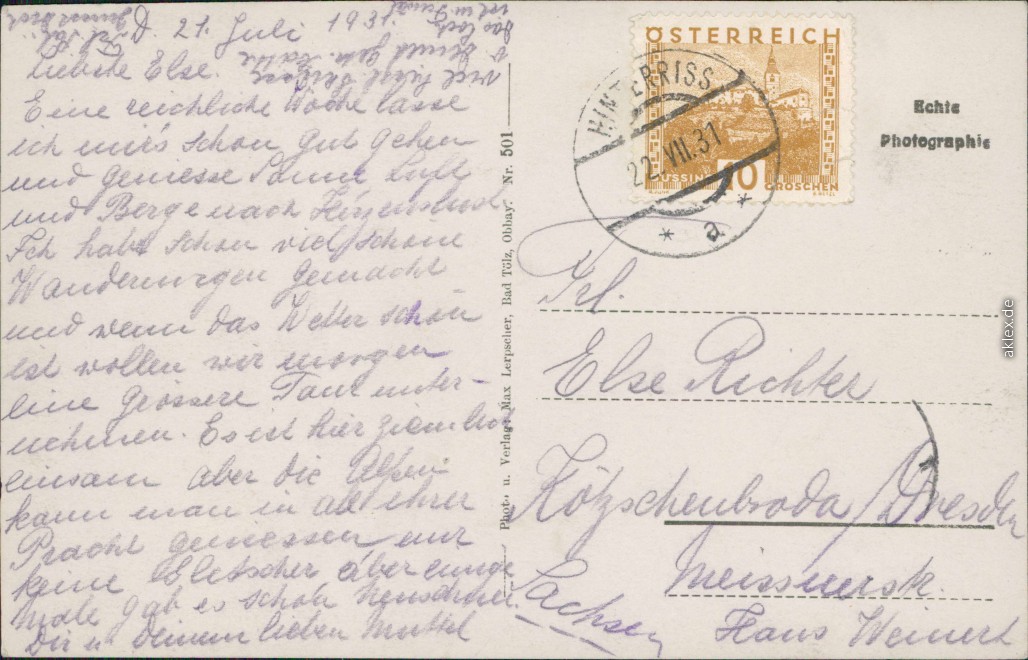 D. 21. Juli 1931.
Liebste Else.
Eine reichliche Woche lasse
ich mir's schon gut gehen
und geniesse Sonne Luft
und Berge nach Herzenslust
Ich habe schon viel schöne
Wanderungen gemacht
und wenn das Wetter schön
ist wollen wir morgen
eine grössere Tour unter-
nehmen. Es ist hier ziemlich
einsam aber die Alpen
kann man in all ihrer
Pracht geniessen nur
keine Gletscher aber einige
male gab es schon Neuschnee.
Dir u deinem lieben Muttel
Photo u. Verlag Max Lerpscher, Bad Tölz, Obbay. Nr. 501
ÖSTERREICH
GÜSSING
10
GROSCHEN
HINTERRISS
22.VII.31
* a *
Echte
Photographie
Frl.
Else Richter
Kötzschenbroda/Dresden
Meissnerstr.
Sachsen
Haus Weinert
aklex.de